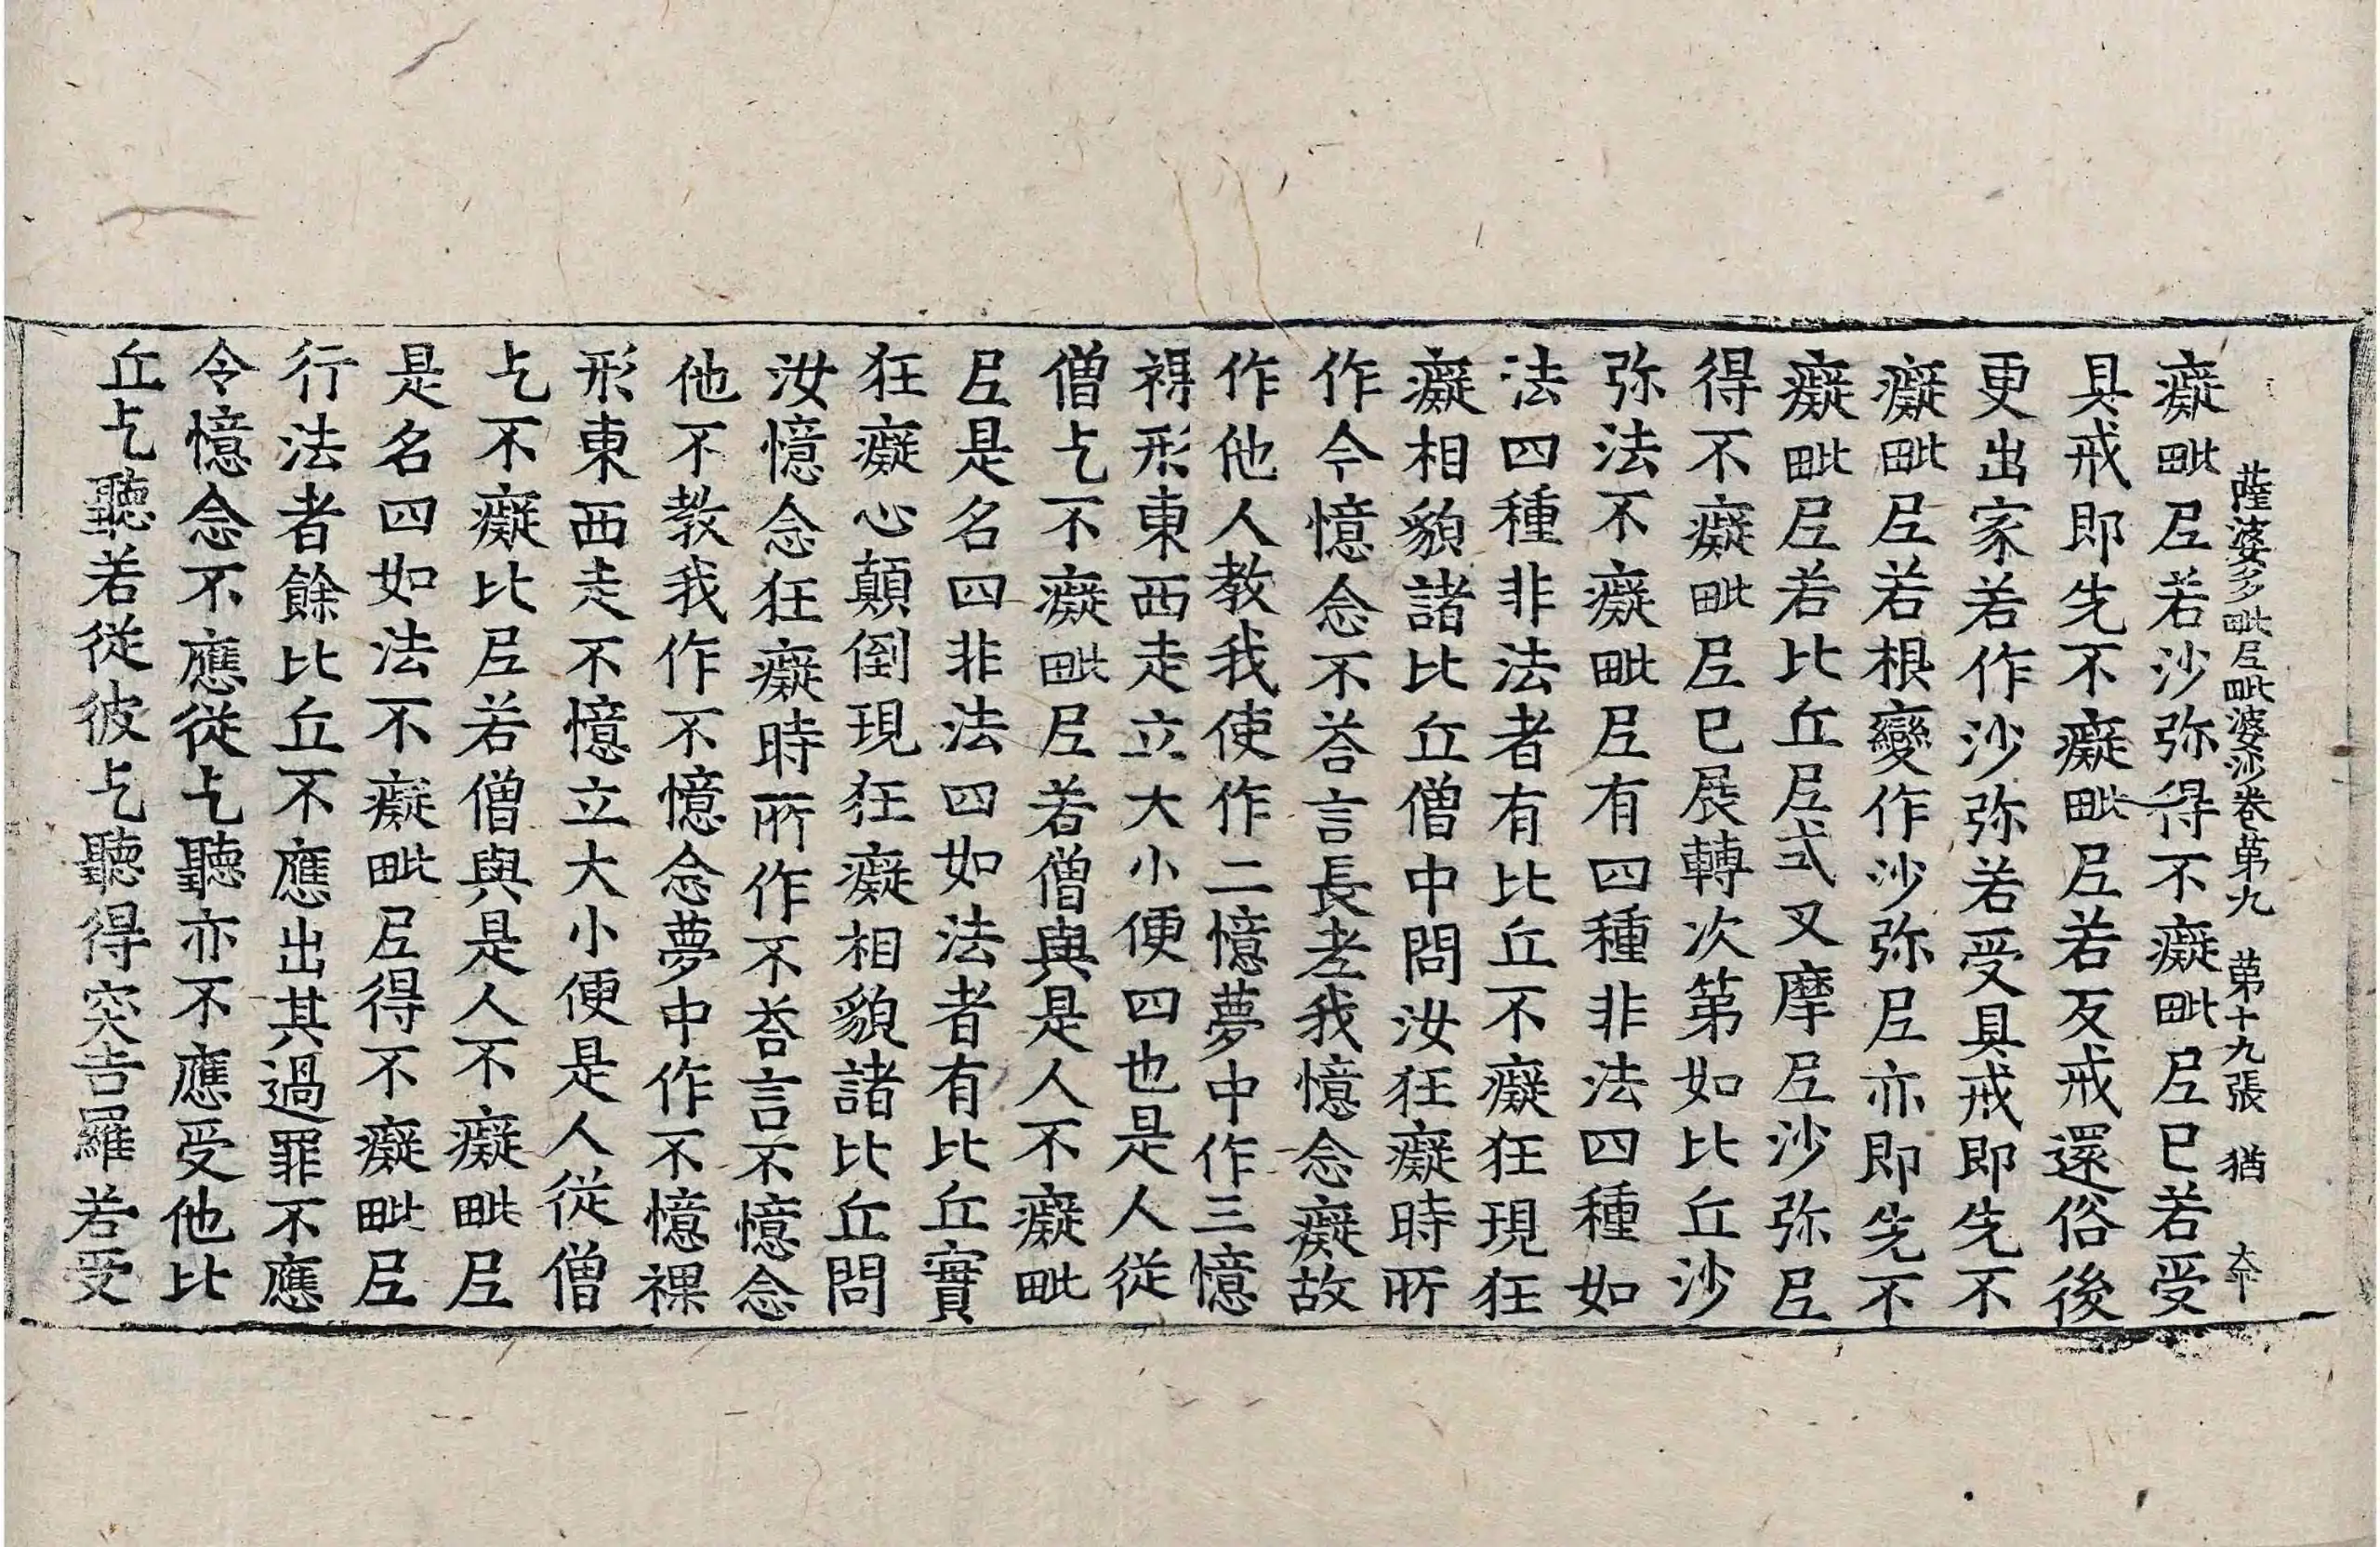 薩婆多毗尼毗婆沙卷第九 第十九張 猶
癡毗尼若沙弥得不癡毗尼已若受
具戒即先不癡毗尼若反戒還俗後
更出家若作沙弥若受具戒即先不
癡毗尼若根變作沙弥尼亦即先不
癡毗尼若比丘尼式叉摩尼沙弥尼
得不癡毗尼已展轉次第如比丘沙
弥法不癡毗尼有四種非法四種如
法四種非法者有比丘不癡狂現狂
癡相貌諸比丘僧中問汝狂癡時所
作今憶念不荅言長老我憶念癡故
作他人教我使作二憶夢中作三憶
裸形東西走立大小便四也是人從
僧乞不癡毗尼若僧與是人不癡毗
尼是名四非法四如法者有比丘實
狂癡心顛倒現狂癡相貌諸比丘問
汝憶念狂癡時所作不荅言不憶念
他不教我作不憶念夢中作不憶裸
形東西走不憶立大小便是人從僧
乞不癡比尼若僧與是人不癡毗尼
是名四如法不癡毗尼得不癡毗尼
行法者餘比丘不應出其過罪不應
令憶念不應從乞聽亦不應受他比
丘乞聽若從彼乞聽得突吉羅若受